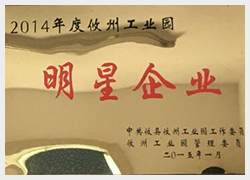 2014年度攸州工业园
明星企业
中共攸县攸州工业园工作委员
攸州工业园管理委员
二〇一五年一月